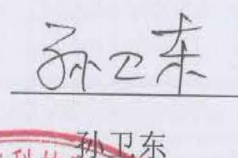 孙卫东
孙卫东